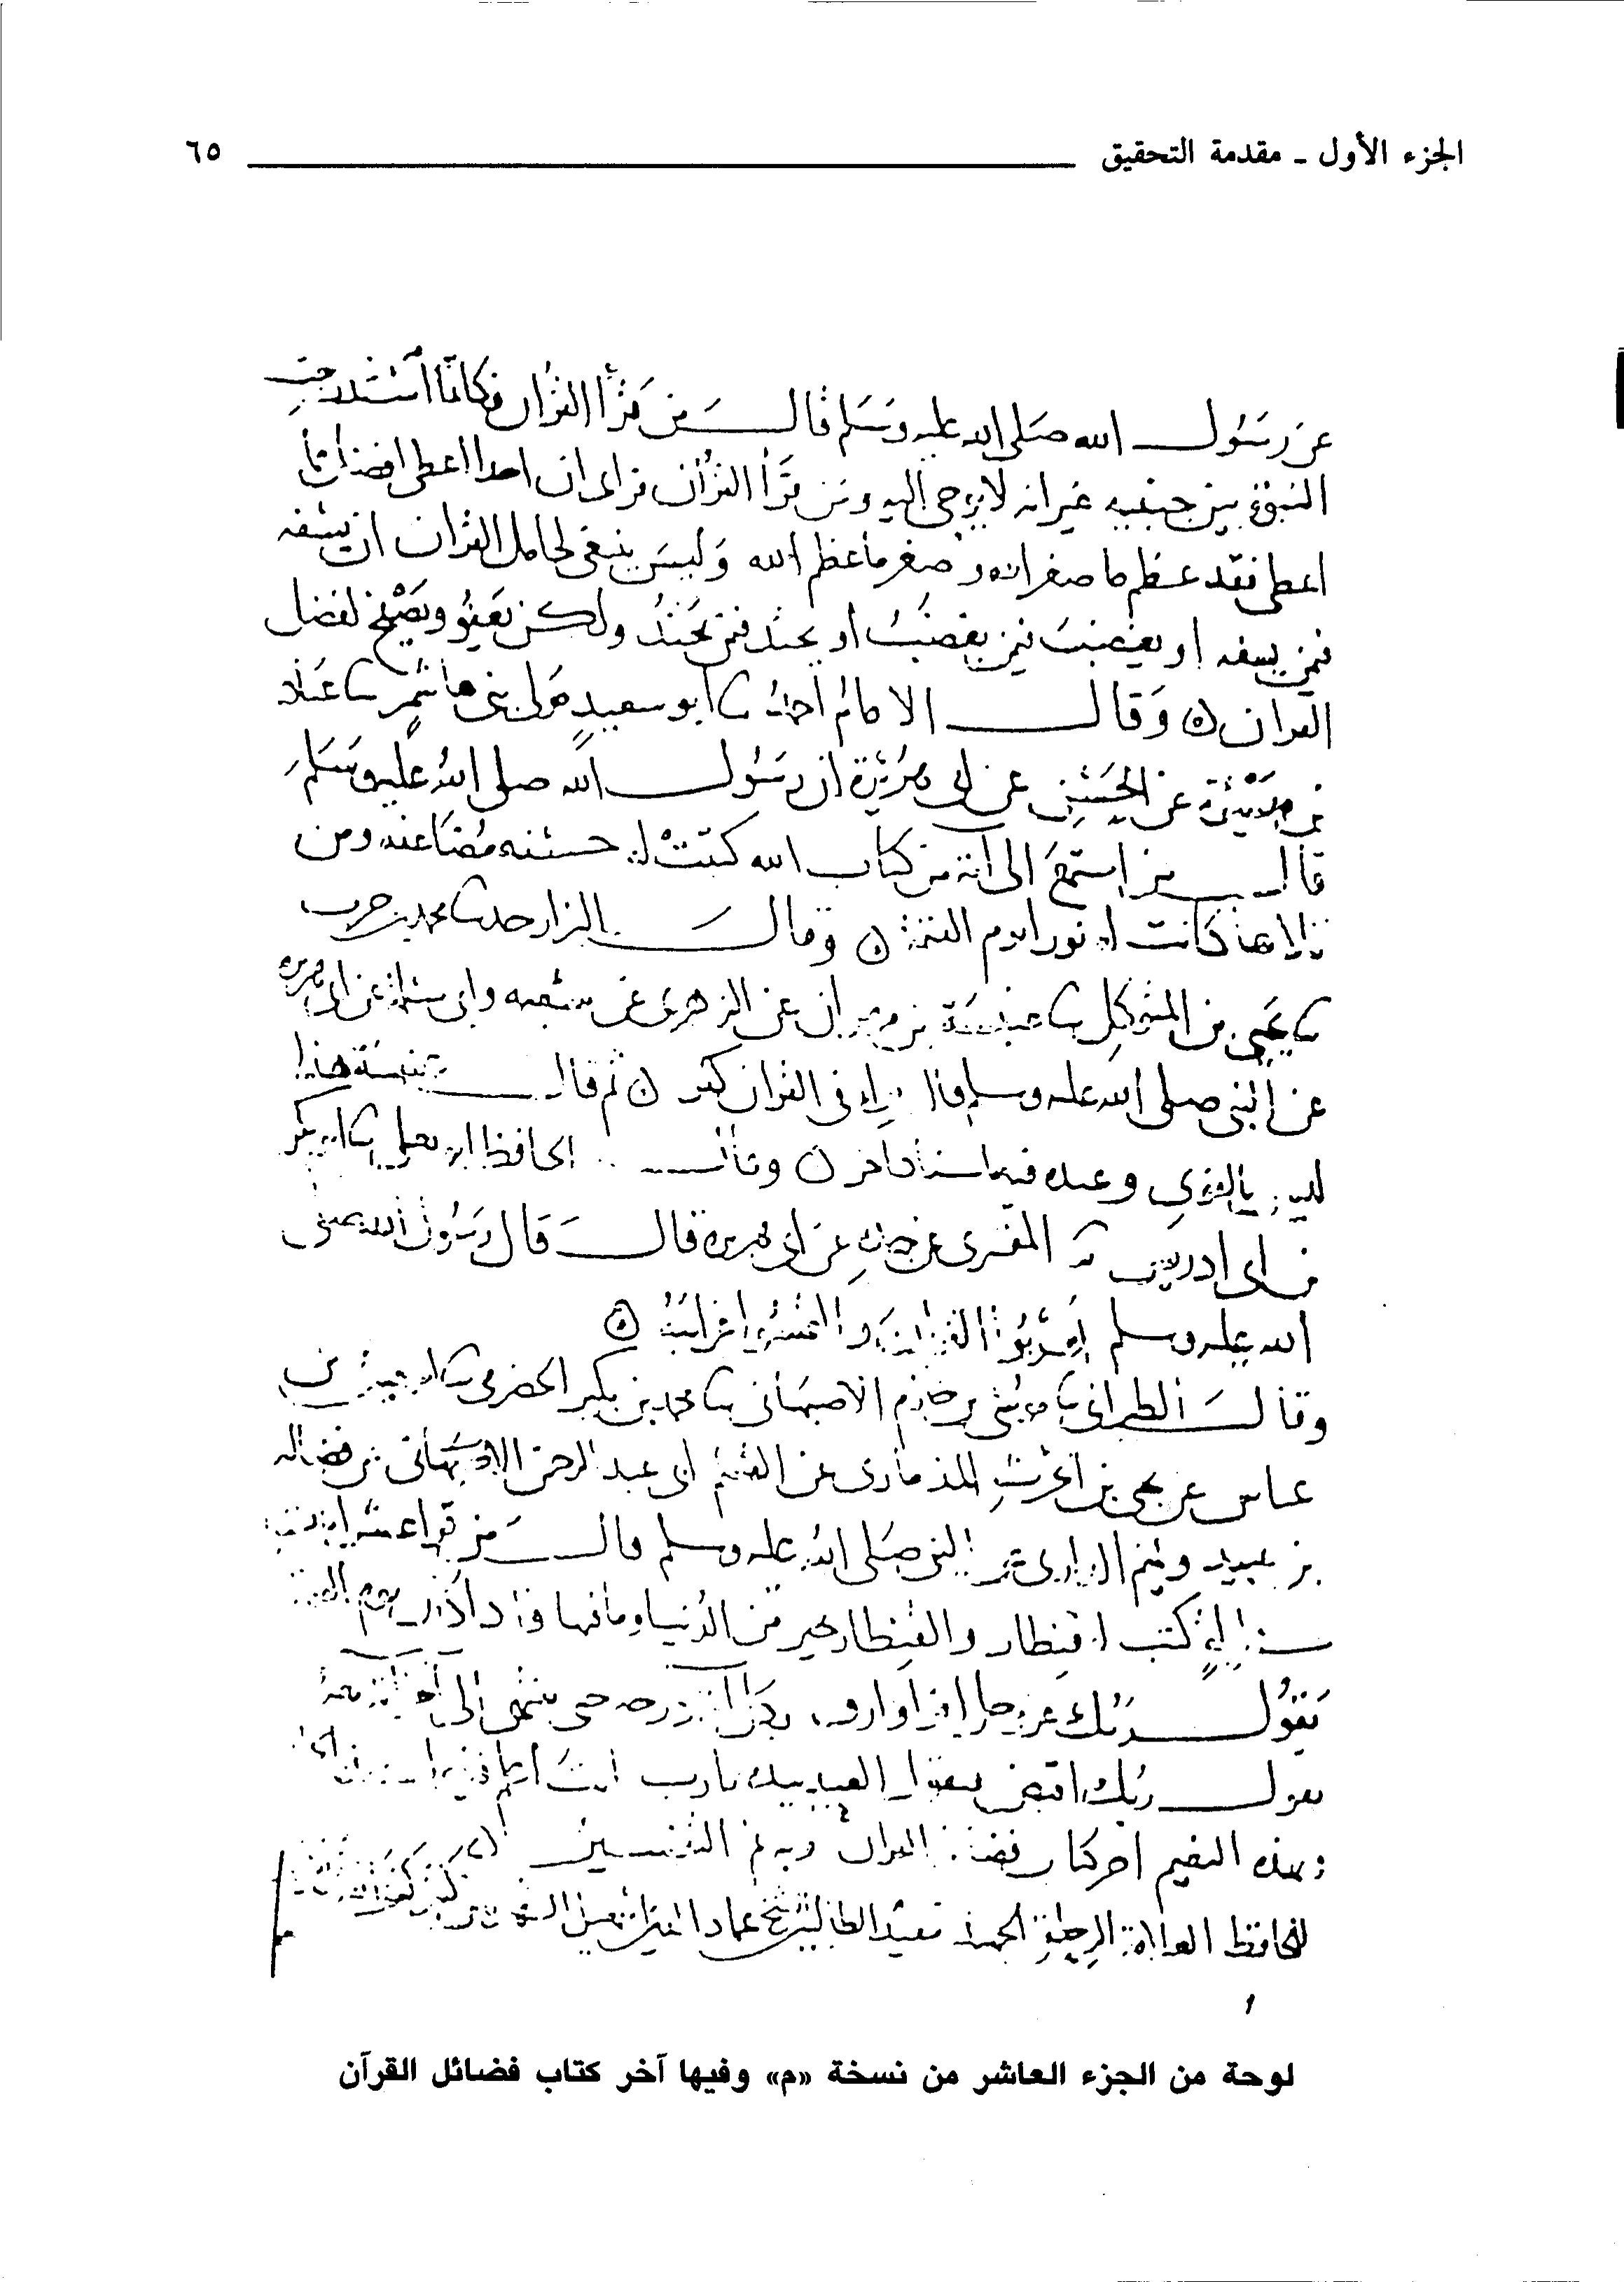 الجزء الأول - مقدمة التحقيق ٦٥
عن رسول الله صلى الله عليه وسلم قال من قرأ القرآن فكانما استدرجت
النبوة بين جنبيه غير انه لا يوحى اليه ومن قرأ القرآن فراى ان احدا اعطى افضل مما
اعطى فقد عظم ما صغر الله وصغر ما عظم الله وليس ينبغي لحامل القران ان يسفه
فيمن يسفه او يغضب فيمن يغضب او يحتد فيمن يحتد ولكن يعفو ويصفح لفضل
القران وقال الامام أحمد ثنا أبو سعيد مولى بني هاشم ثنا عباد
بن ميسرة عن الحسن عن أبي هريرة ان رسول الله صلى الله عليه وسلم
قال من استمع الى آية من كتاب الله كتبت له حسنة مضاعفة ومن
تلاها كانت له نورا يوم القيمة وقال البزار حدثنا محمد بن حرب
ثنا يحيى بن المتوكل ثنا عنبسة بن مهران عن الزهري عن سعيد وابي سلمة عن ابي هريرة
عن النبي صلى الله عليه وسلم قال مراء في القران كفر ثم قال عنبسة هذا
ليس بالقوي وعنده فيه اسناد اخر وقال الحافظ ابو يعلى ثنا ابو بكر
بن ابي ادريس المقبري عن جده عن ابي هريرة قال قال رسول الله صلى
الله عليه وسلم اعربوا القران والتمسوا غرائبه
وقال الطبراني ثنا موسى بن حازم الاصبهاني ثنا محمد بن بكير الحضرمي ثنا اسمعيل بن
عياش عن يحيى بن الحرث الذماري عن القسم ابي عبد الرحمن عن فضالة
بن عبيد وتميم الداري عن النبي صلى الله عليه وسلم قال من قرا عشر ايات
في ليلة كتب له قنطار والقنطار خير من الدنيا وما فيها فاذا كان يوم القيمة
يقول ربك عز وجل اقرا وارق بكل آية درجة حتى ينتهي الى اخر آية معه
يقول ربك اقبض فيقول العبد بيده يا رب انت اعلم
النعيم اخر كتاب فضائل القران وبه تم التفسير
للحافظ العلامة الرحلة الجهبذ مفيد الطالبين الشيخ عماد الدين اسمعيل الشهير بابن كثير
لوحة من الجزء العاشر من نسخة «م» وفيها آخر كتاب فضائل القرآن